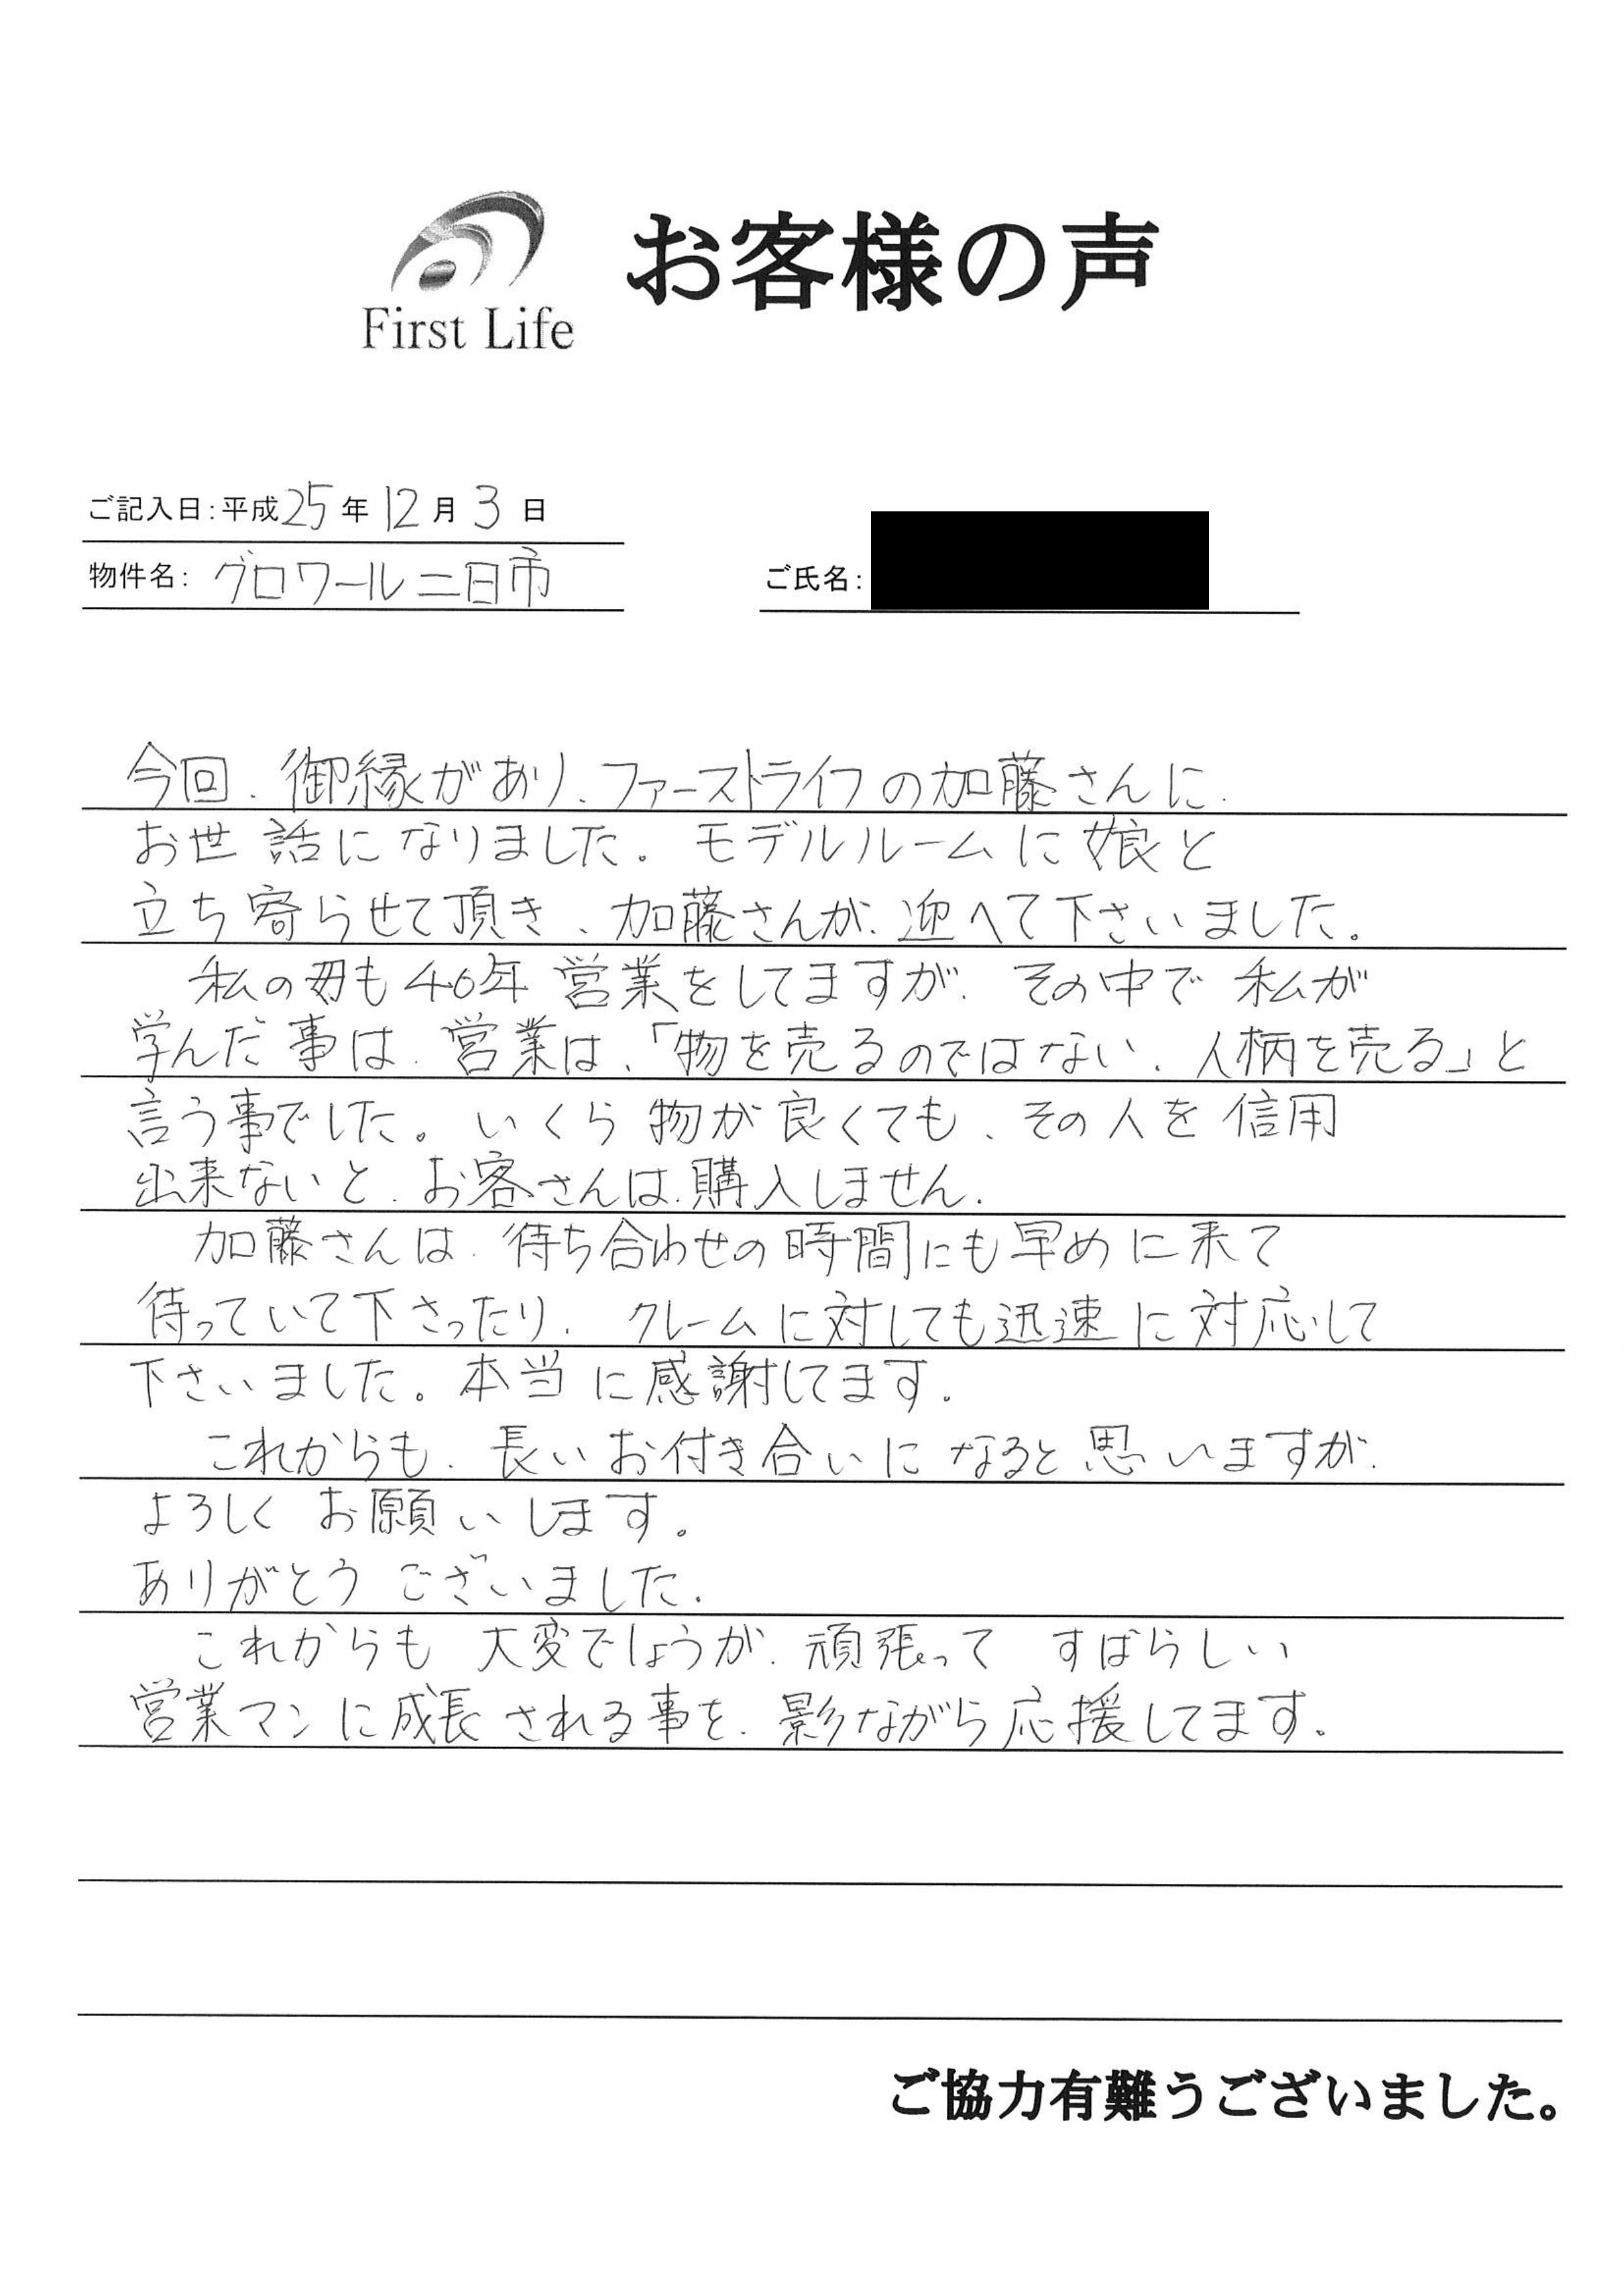 First Life
お客様の声
ご記入日:平成25年12月3日
物件名: グロワール二日市
ご氏名:
今回、御縁があり、ファーストライフの加藤さんに、
お世話になりました。モデルルームに娘と
立ち寄らせて頂き、加藤さんが、迎へて下さいました。
私の母も40年営業をしてますが、その中で私が
学んだ事は、営業は、「物を売るのではない、人柄を売る」と
言う事でした。いくら物が良くても、その人を信用
出来ないと、お客さんは、購入しません。
加藤さんは、待ち合わせの時間にも早めに来て
待っていて下さったり、クレームに対しても迅速に対応して
下さいました。本当に感謝してます。
これからも、長いお付き合いになると思いますが、
よろしくお願いします。
ありがとうございました。
これからも大変でしょうが、頑張ってすばらしい
営業マンに成長される事を、影ながら応援してます。
ご協力有難うございました。